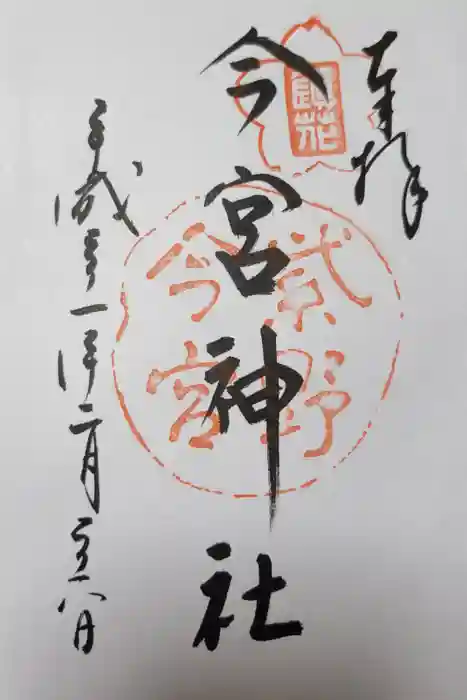 奉拝
今宮神社
平成三十一年二月二十八日
鎮花
紫野
今宮